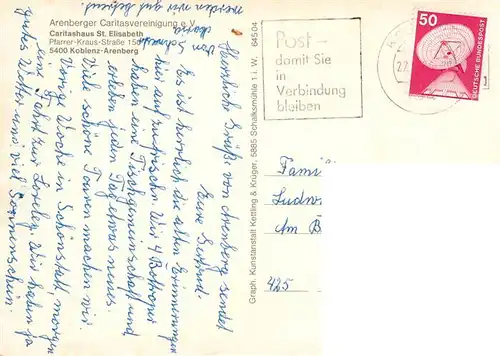 Arenberger Caritasvereinigung e.V.
Caritashaus St. Elisabeth
Pfarrer-Kraus-Straße
5400 Koblenz-Arenberg
Herrliche Grüße von Arenberg sendet
Eure Gertrud.
Es ist herrlich die alten Erinnerungen
hier auf zufrischen. Wir 4 Bottroper
haben eine Tischgemeinschaft und
erleben jeden Tag etwas neues.
Viele schöne Touren machen wir.
Vorige Woche in Schönstatt, morgen
eine Fahrt zur Loreley. Wir haben ja
gutes Wetter und viel Sonnenschein.
von Schwester
Maria
werden wir gut
Graph. Kunstanstalt Kettling & Krüger, 5885 Schalksmühle 1 i. W. 64504
Post –
damit Sie
in
Verbindung
bleiben
50
DEUTSCHE BUNDESPOST
Famil
Ludw
Am B
425